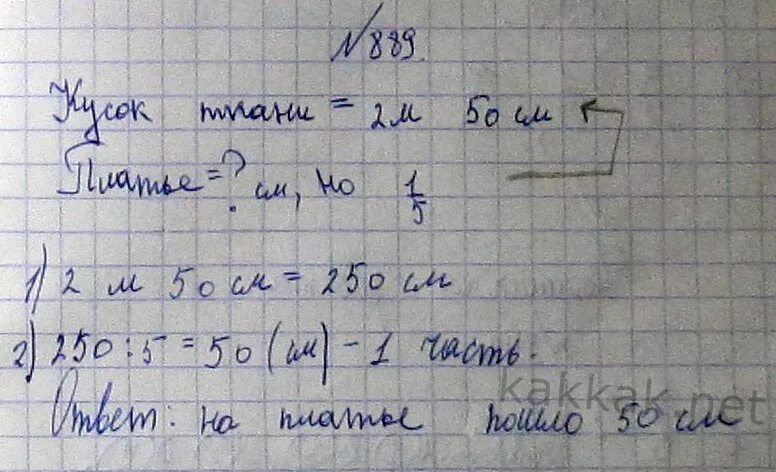 №889.
Кусок ткани = 2м 50 см
Платье = ? см, но 1/5
1) 2 м 50 см = 250 см
2) 250 : 5 = 50 (см) - 1 часть.
Ответ: на платье пошло 50 см
kakkak.net